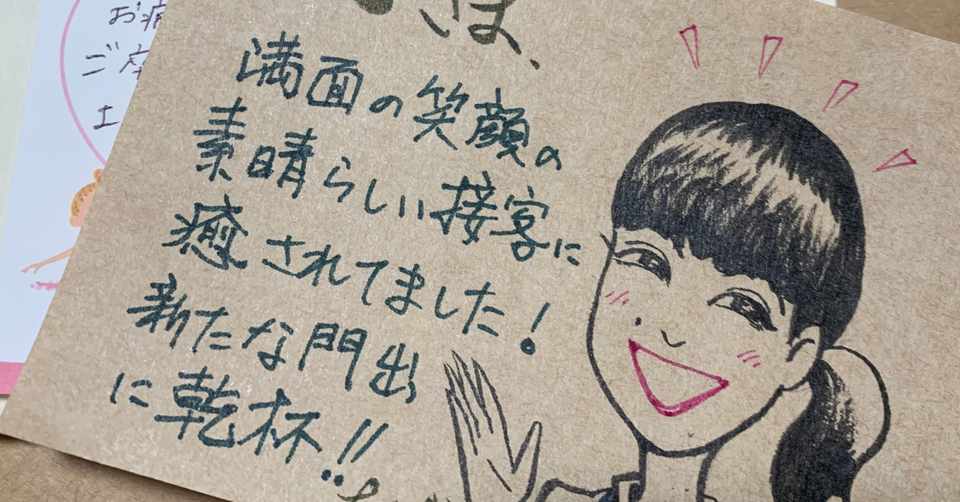 は、
満面の笑顔の
素晴らしい接客に
癒されてました!
新たな門出
に乾杯!!
お疲
ご